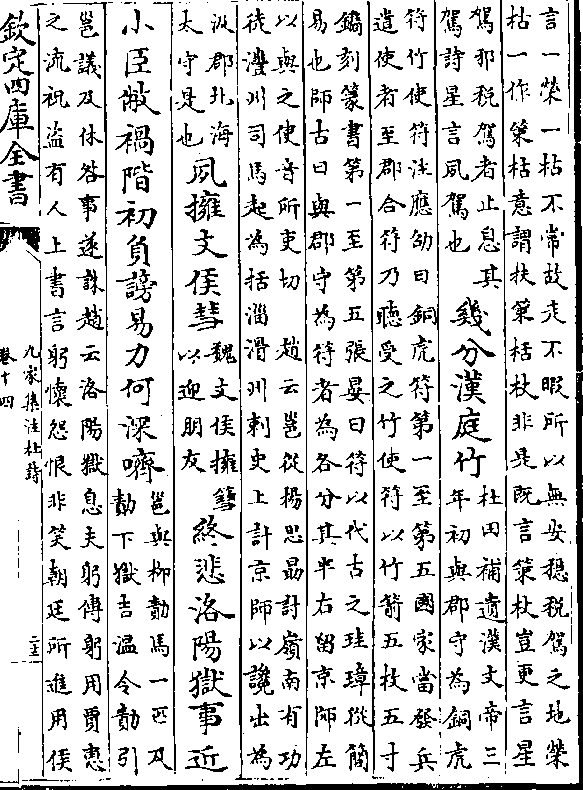 言一榮一枯不常故走不暇所以無安穩稅駕之地榮
枯一作策枯意謂扶策栝杖非是既言策杖豈更言星
駕邪稅駕者止息其
駕詩星言夙駕也
幾分漢庭竹
杜田補遺漢文帝三
年初與郡守為銅虎
符竹使符注應劭曰銅虎符第一至第五國家當發兵
遣使者至郡合符乃聽受之竹使符以竹箭五枚五寸
鐫刻篆書第一至第五張晏曰符以代古之珪璋從簡
易也師古曰與郡守為符者為各分其半右留京師左
以與之使音所吏切 趙云邕從揚思朂討嶺南有功
徙澧州司馬起為括淄滑州刺史上計京師以讒出為
汲郡北海
太守是也
夙擁文侯彗
魏文侯擁篲
以迎朋友
終悲洛陽獄事近
小臣敝禍階初負謗易力何深嚌
邕與柳勣馬一匹及
勣下獄吉温令勣引
邕議及休咎事遂誅趙云洛陽獄息夫躬傳躬用賈惠
之流祝盜有人上書言躬懷怨恨非笑朝廷所進用侯
欽定四庫全書
九家集注杜詩
卷十四